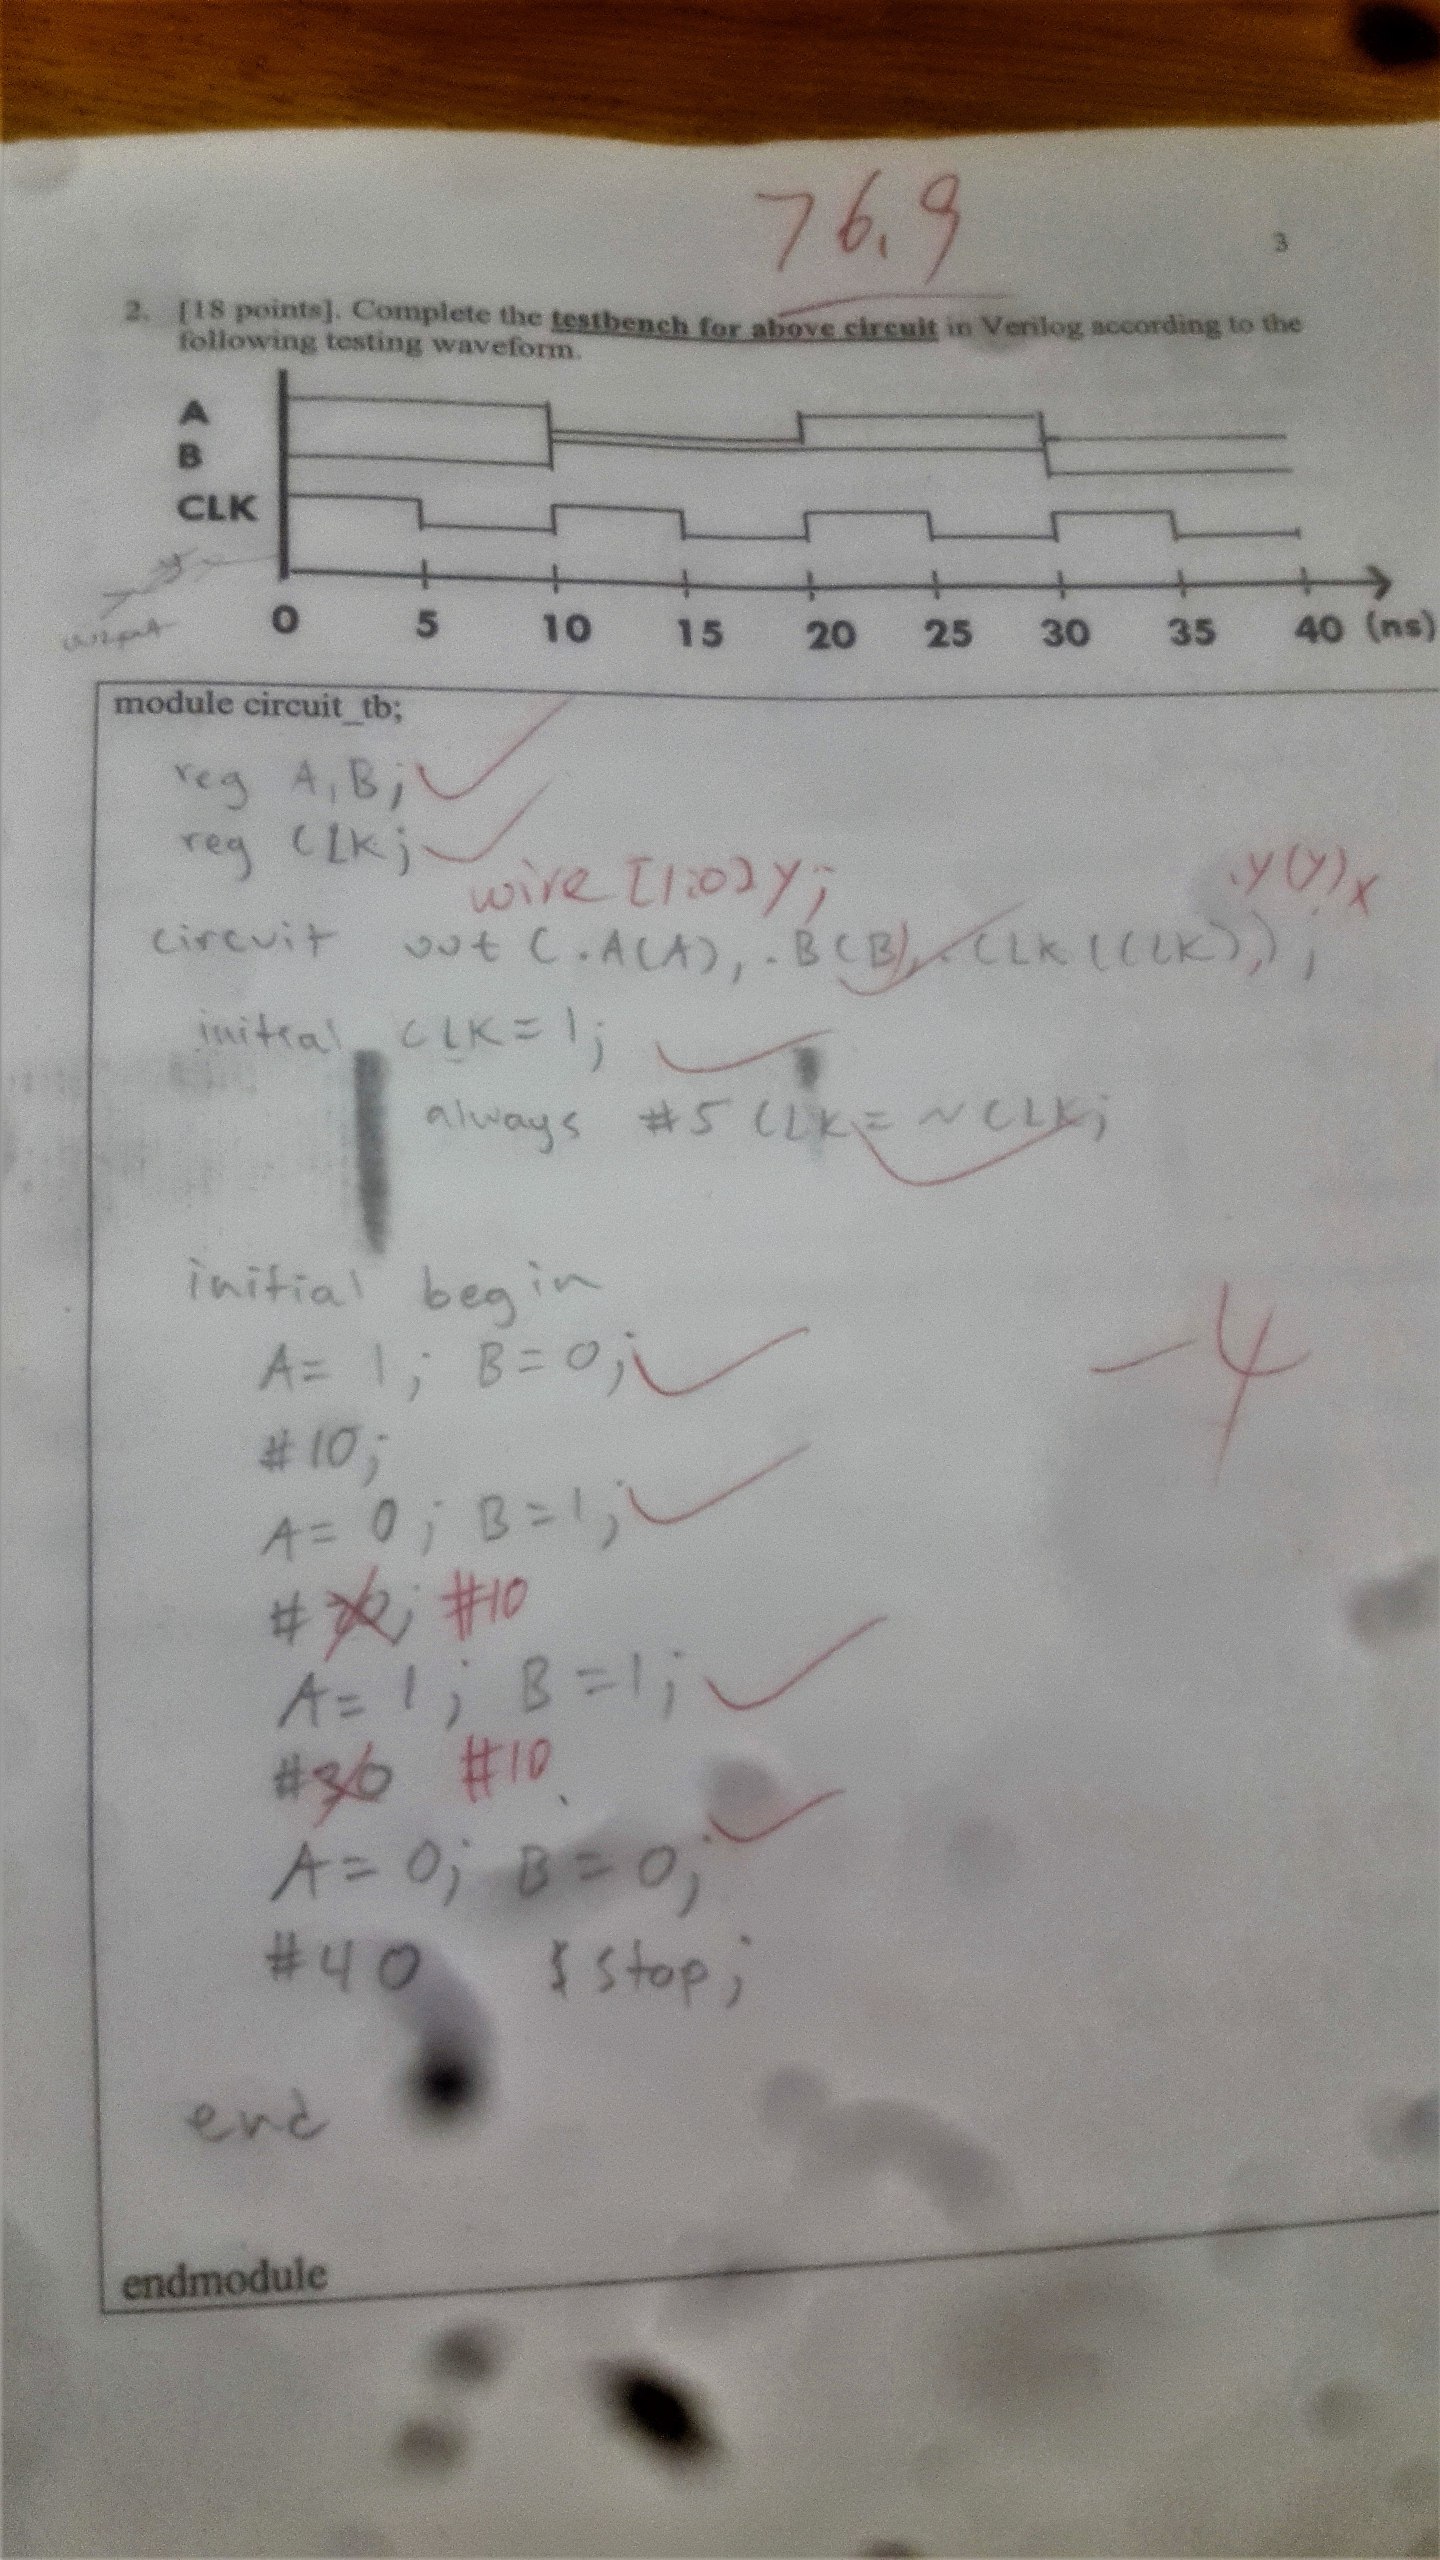 76.9
3
2. [18 points]. Complete the testbench for above circuit in Verilog according to the
following testing waveform.
A
B
CLK
y
output
0 5 10 15 20 25 30 35 40 (ns)
module circuit_tb;
reg A,B;
reg CLK;
wire [1:0] y;
.y(y) x
circuit uut (.A(A), .B(B), .CLK(CLK),);
initial CLK=1;
always #5 CLK=~CLK;
initial begin
A= 1; B=0;
-4
#10;
A= 0; B=1;
#20; #10
A= 1; B=1;
#30 #10
A= 0; B=0;
#40 $stop;
end
endmodule